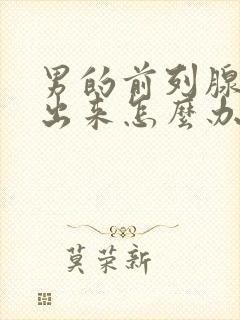 男的前列腺
出来怎麼办
莫荣新